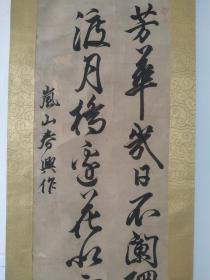 芳華幾日不闌珊
渡月橋邊花水
嵐山春興作